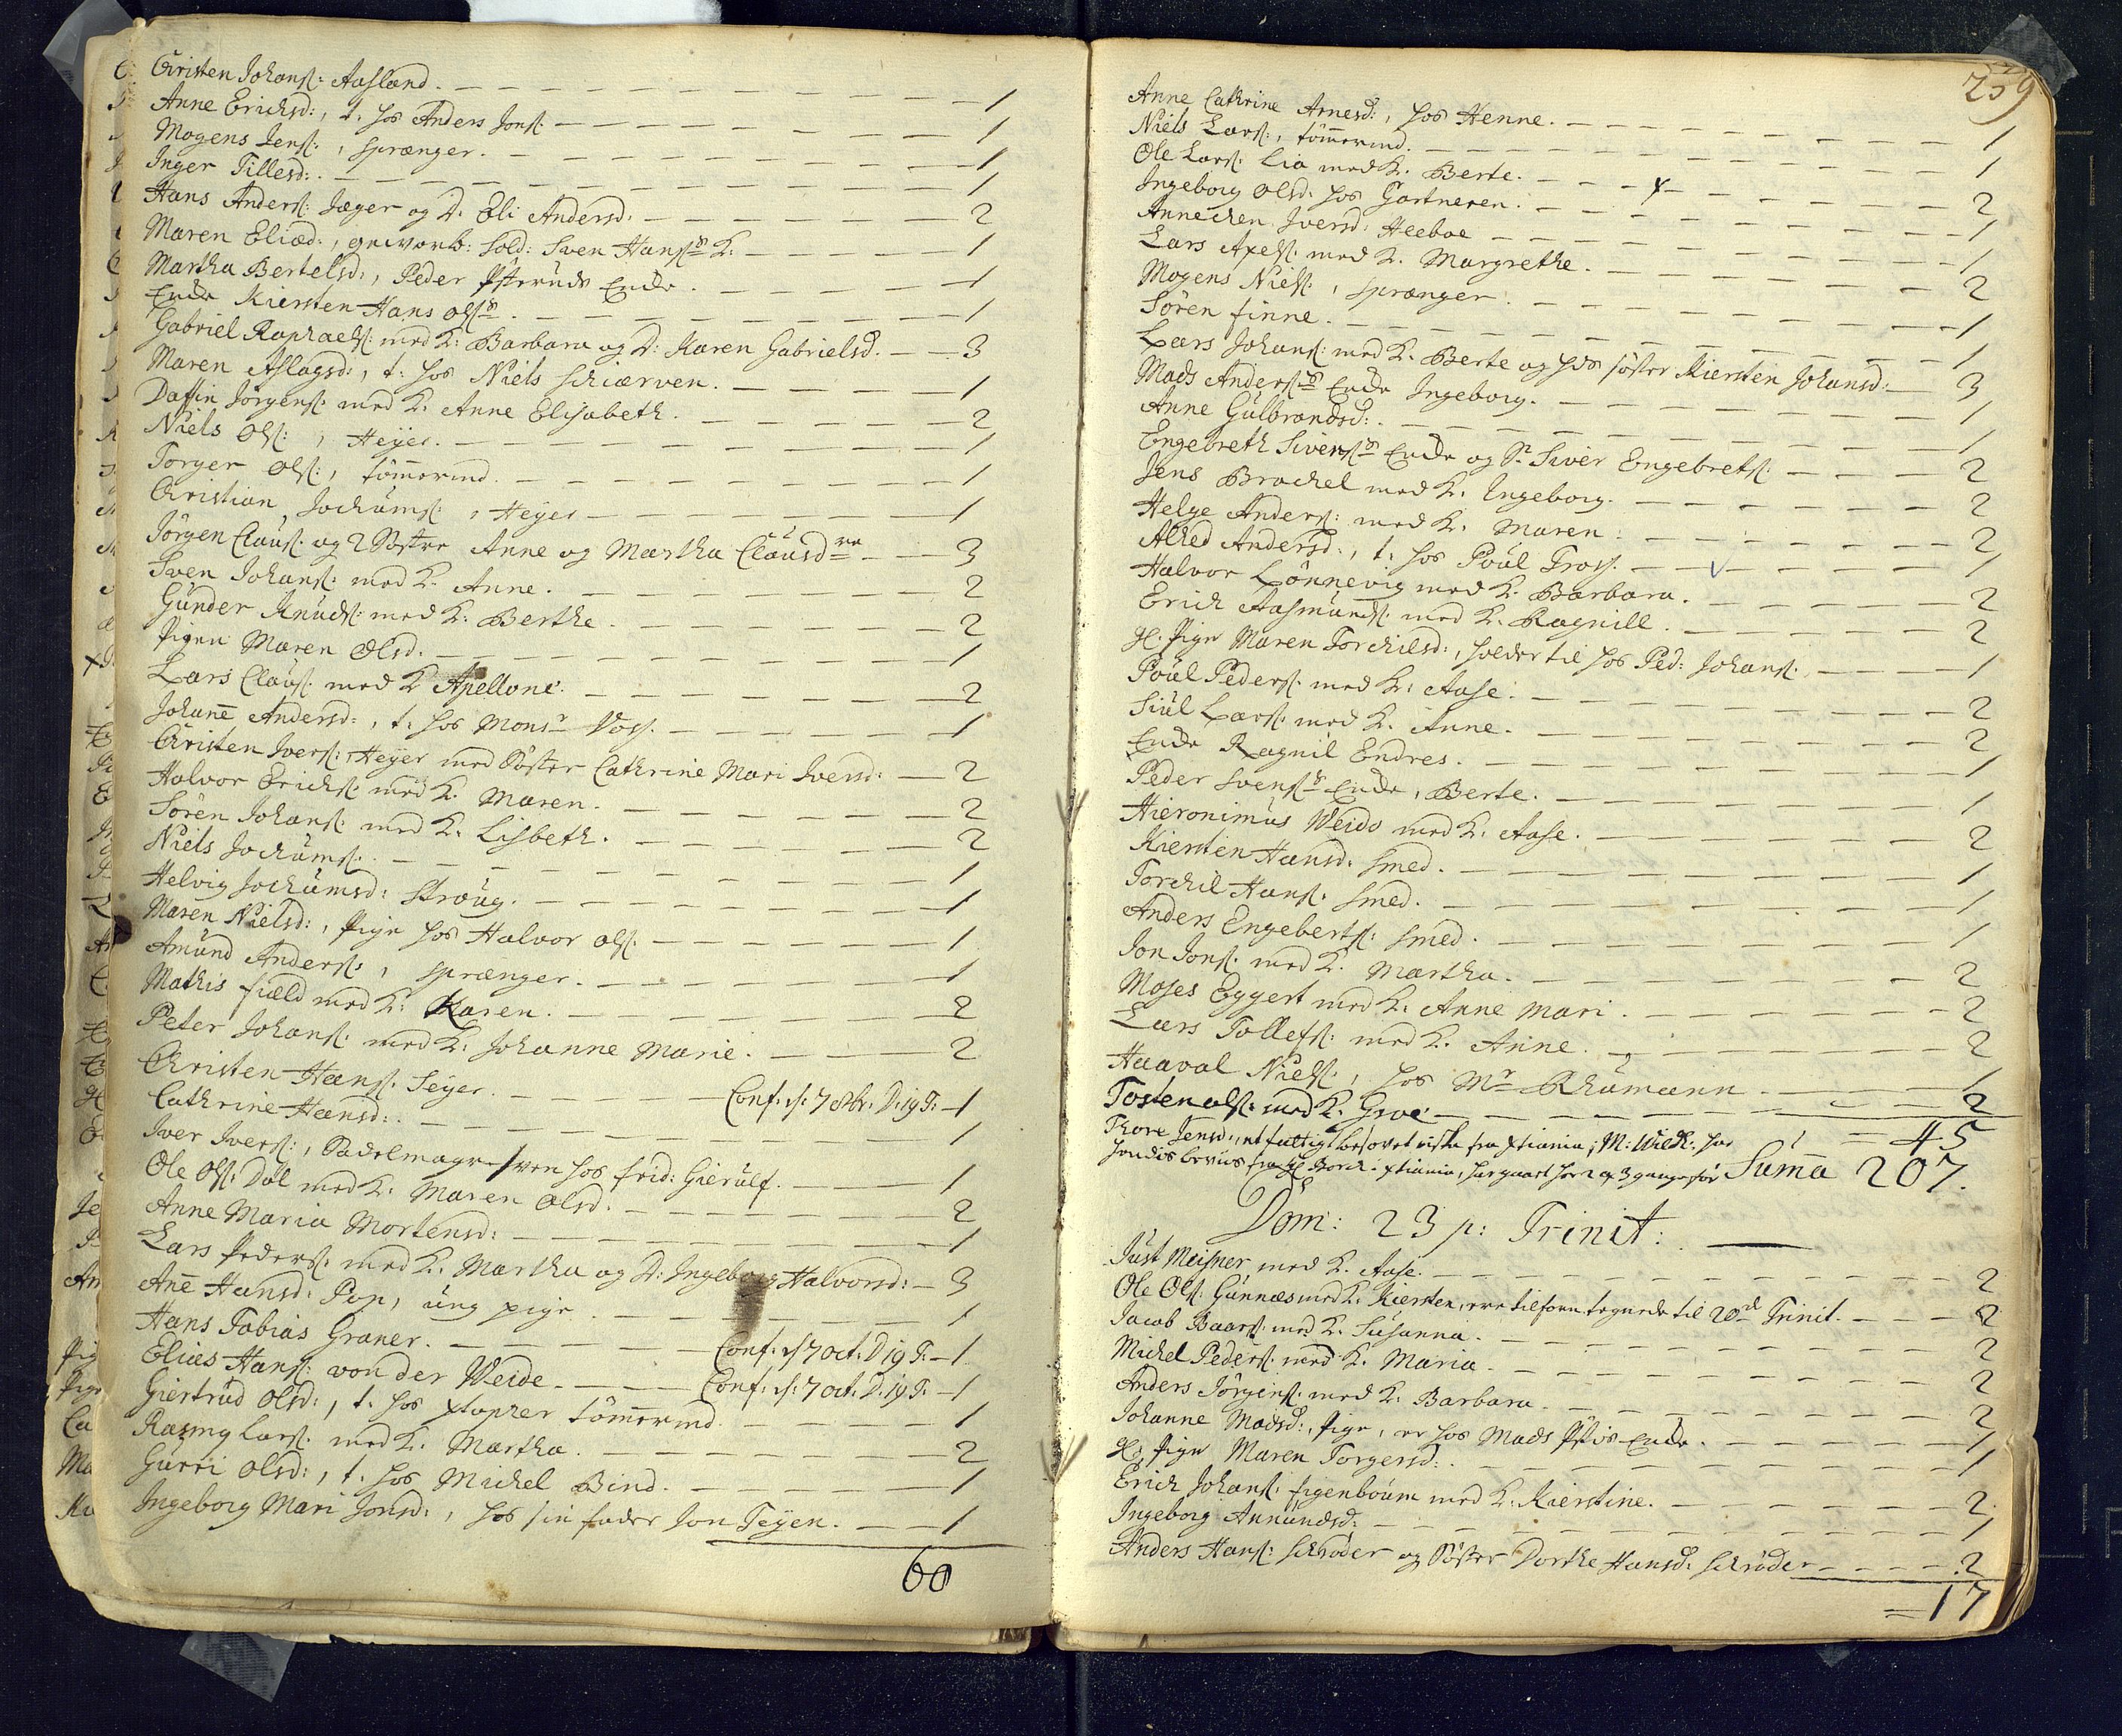 Christen Johans: Aasland. 1
Anne Erichsd:, t. hos Anders Jons: 1
Mogens Jens:, sprænger. 1
Inger Tillesd: 1
Hans Anders: Jæger og D. Eli Andersd: 2
Maren Eliæd:, gevorb: Sold: Sven Hans:s K. 1
Martha Bertelsd:, Peder Enke. 1
Enke Kiersten Hans Ols:s 1
Gabriel Raphaels: med K: Barbara og D: Karen Gabrielsd. 3
Maren Aslagsd:, t. hos Niels Schiærven. 1
Daffin Jörgens: med K. Anne Elisabeth. 2
Niels Ols:, Heyer. 1
Torger Ols:, tömmermd. 1
Christian Jochums:, Heyer 1
Jörgen Claus: og 2 Söstre Anne og Martha Clausdre 3
Sven Johans: med K. Anne. 2
Gunder Knuds: med K: Berthe. 2
Pigen Maren Olsd. 1
Lars Claus: med K Apellone. 2
Johane Andersd:, t. hos Monsr Voss. 1
Christen Ivers:, Heyer med Söster Cathrine Mari Iversd: 2
Halvor Erichs: med K. Maren. 2
Sören Johans: med K. Lisbeth. 2
Niels Jochums: 1
Helvig Jochumsd: Straug. 1
Maren Nielsd:, Pige hos Halvor Ols: 1
Amund Anders:, sprænger. 1
Mathis field med K: Karen. 2
Peter Johans: med K: Johanne Marie. 2
Christen Hans: Seyer. Conf. s: 7 8br. D. 19 T. 1
Cathrine Hansd: 1
Iver Ivers:, Sadelmagersven hos frid: Gierulf. 1
Ole Ols: Dal med K. Maren Olsd. 2
Anne Maria Mortensd: 1
Lars Peders: med K. Martha og D: Ingeborg Halvorsd: 3
Ane Hansd: Pop, ung pige. 1
Hans Tobias Graner. Conf. s 7 Oct. D 19 T. 1
Elias Hans: von der Weide. Conf. s: 7 Oct. D. 19 T. 1
Giertrud Olsd:, t. hos Xtopher tömmermd. 1
Rasmg Lars: med K. Martha. 2
Gurri Olsd:, t. hos Michel Bind. 1
Ingeborg Mari Jonsd:, hos sin fader Jon Teyen. 1
60
259
Anne Cathrine Arnesd:, hos Henne. 1
Niels Lars:, tömmermd. 1
Ole Lars: Lia med K. Berte. 2
Ingeborg Olsd: hos Gartneren. 1
Annechen Iversd: Heeboe 1
Lars Apels: med K. Margrethe. 2
Mogens Niels:, sprænger. 1
Sören finne. 1
Lars Johans: med K. Berte og hds söster Kiersten Johansd: 3
Mads Anders:s Enke Ingeborg. 1
Anne Gulbrandsd: 1
Engebreth Sivers:s Enke og S. Siver Engebrets: 2
Jens Brachel med K. Ingeborg. 2
Helge Anders: med K. Maren 2
Alhed Andersd:, t. hos Poul Tross. 1
Halvor Lönnevig med K. Barbara. 2
Erich Aasmunds: med K. Ragnill. 2
gl. Pige Maren Torchilsd:, holder til hos Ped: Johans: 1
Poul Peders: med K: Aase. 2
Siul Lars: med K. Anne. 2
Enke Ragnil Endres. 1
Peder Svens:s Enke, Berte. 1
Hieronimus Weido med K. Aase. 2
Kiersten Hansd: Smed. 1
Torchil Hans: Smed. 1
Anders Engeberts: Smed. 1
Jon Jons: med K. Martha. 2
Moses Eggert med K. Anne Mari. 2
Lars Tollefs: med K. Anne. 2
Haaval Niels:, hos Mr Rhumann 1
Tosten Ols: med K. Groe. 2
45
Thore Jensd:, et fattigt besovet fra Xtiania; M: Wilh: har
hendis beviis fra Hr Borch. Xtiania, har gaaet her 2 a 3 gange för Suma 207.
Dom: 23 p: Trinit:
Just Meisner med K. Aase. 2
Ole Ols: Gunnæs med K. Kiersten, vare tilforn tegnede til 20de Trinit. 2
Jacob Baars: med K. Susanna. 2
Michel Peders: med K. Maria. 2
Anders Jörgens: med K. Barbara. 2
Johanne Madsd:, Pige, er hos Mads Enke. 1
gl. Pige Maren Torgersd: 1
Erich Johans: figenboum med K. Kierstine. 2
Ingeborg Annundsd: 1
Anders Hans: Schröder og Söster Dorthe Hansd: Schröder 2
17